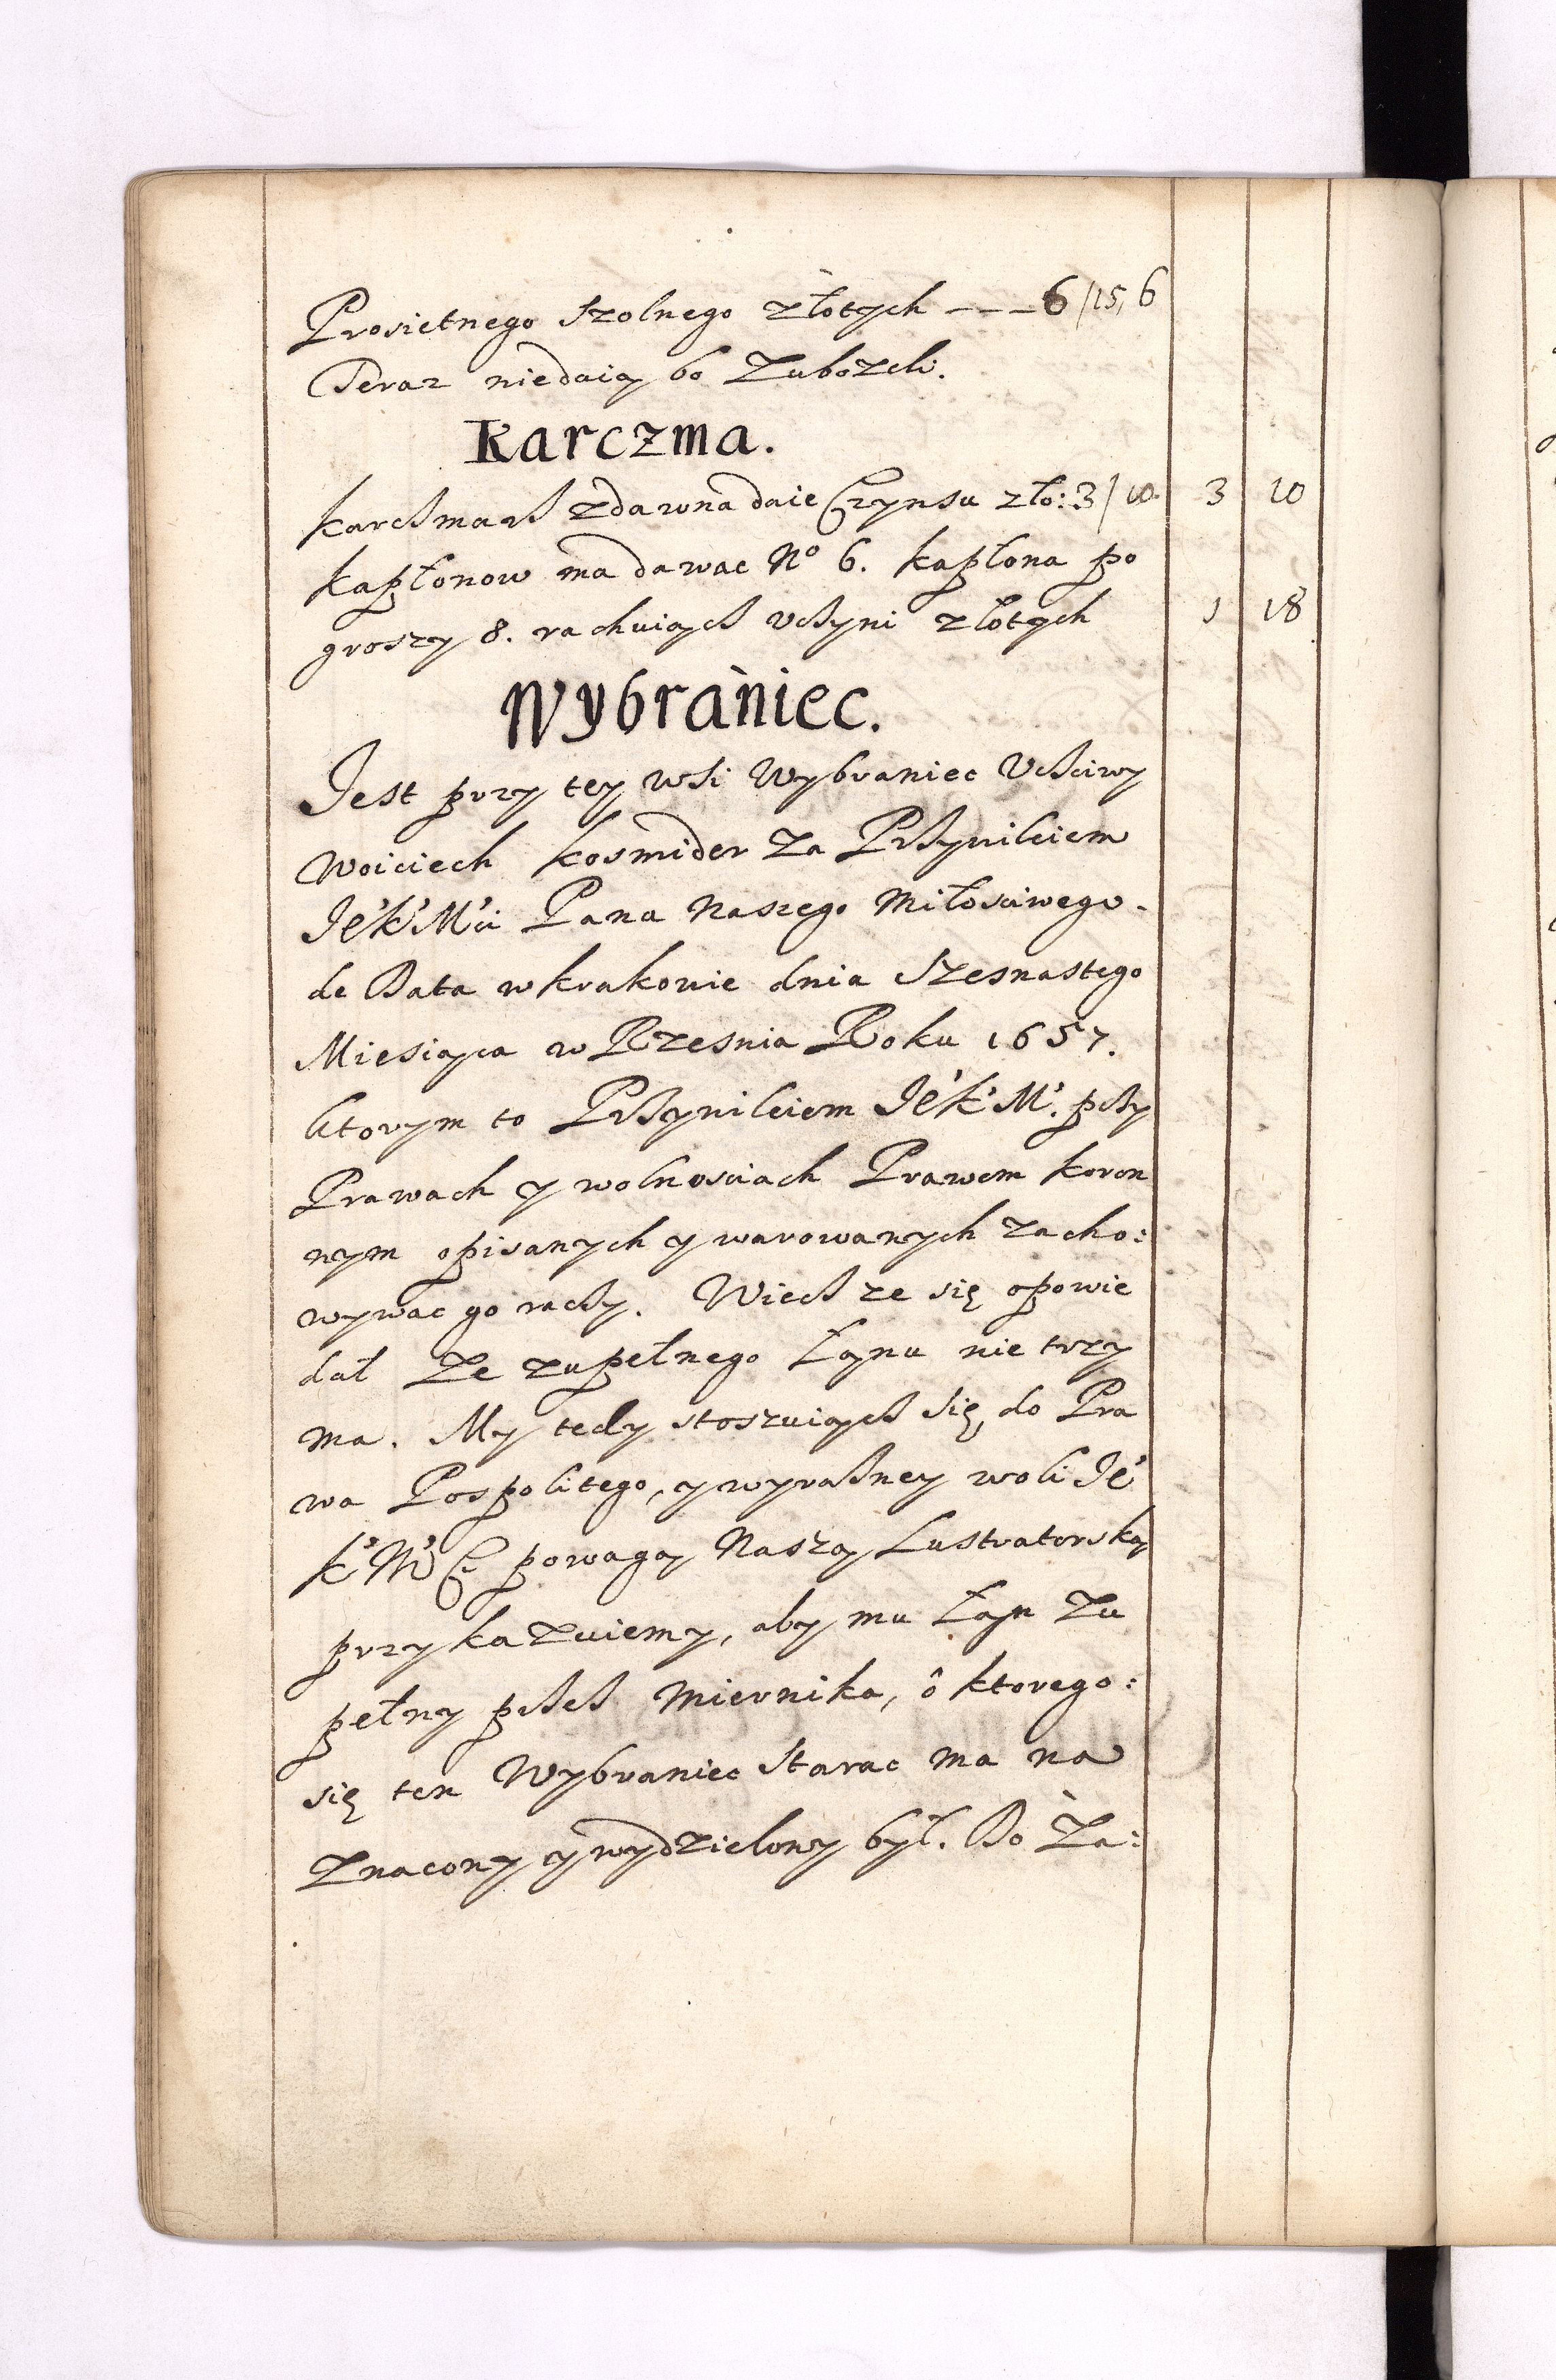 Prosietnego Szolnego złotych --- 6/15, 6
Teraz niedaią bo Zubozeli.
Karczma.
Karczmarz zdawna daie Czynsu zło: 3/10. 3 10
Kapłonow ma dawac No 6. kapłona po
groszy 8. rachuiącz uczyni złotych 1 18
Wybraniec.
Jest przy tey wsi Wybraniec Uczciwy
Woiciech Kosmider za Przywileiem
Ie° K° M°ci Pana Naszego Miłosciwego.
de Data w Krakowie dnia Szesnastego
Miesiąca w Rzesnia Roku 1657.
ktorym to Przywileiem Ie° K° M°. przy
Prawach y wolnosciach Prawem koron
nym opisanych y warowanych zacho:
wywac go raczy. Wiecz ze się opowie
dał ze zupełnego Łanu nie trzy
ma. My tedy stoszuiącz się do Pra
wa Pospolitego, y wyrazney woli Ie°
K° M° Ci powagą Naszą Lustratorską
przykazuiemy, aby mu Łan zu
pełny przez Miernika, o ktorego:
się ten Wybraniec Starac ma na
znacony y wydzielony był. Bo Za: